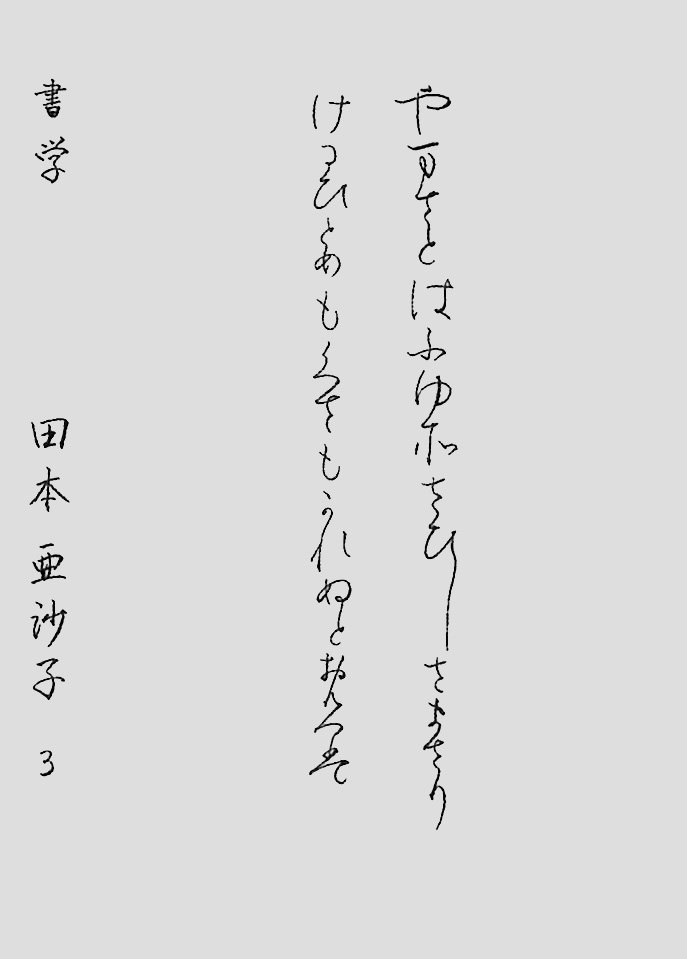 やまさとはふゆそさひしさまさり
けるひとめもくさもかれぬとおもへは
書学 田本亜沙子 3